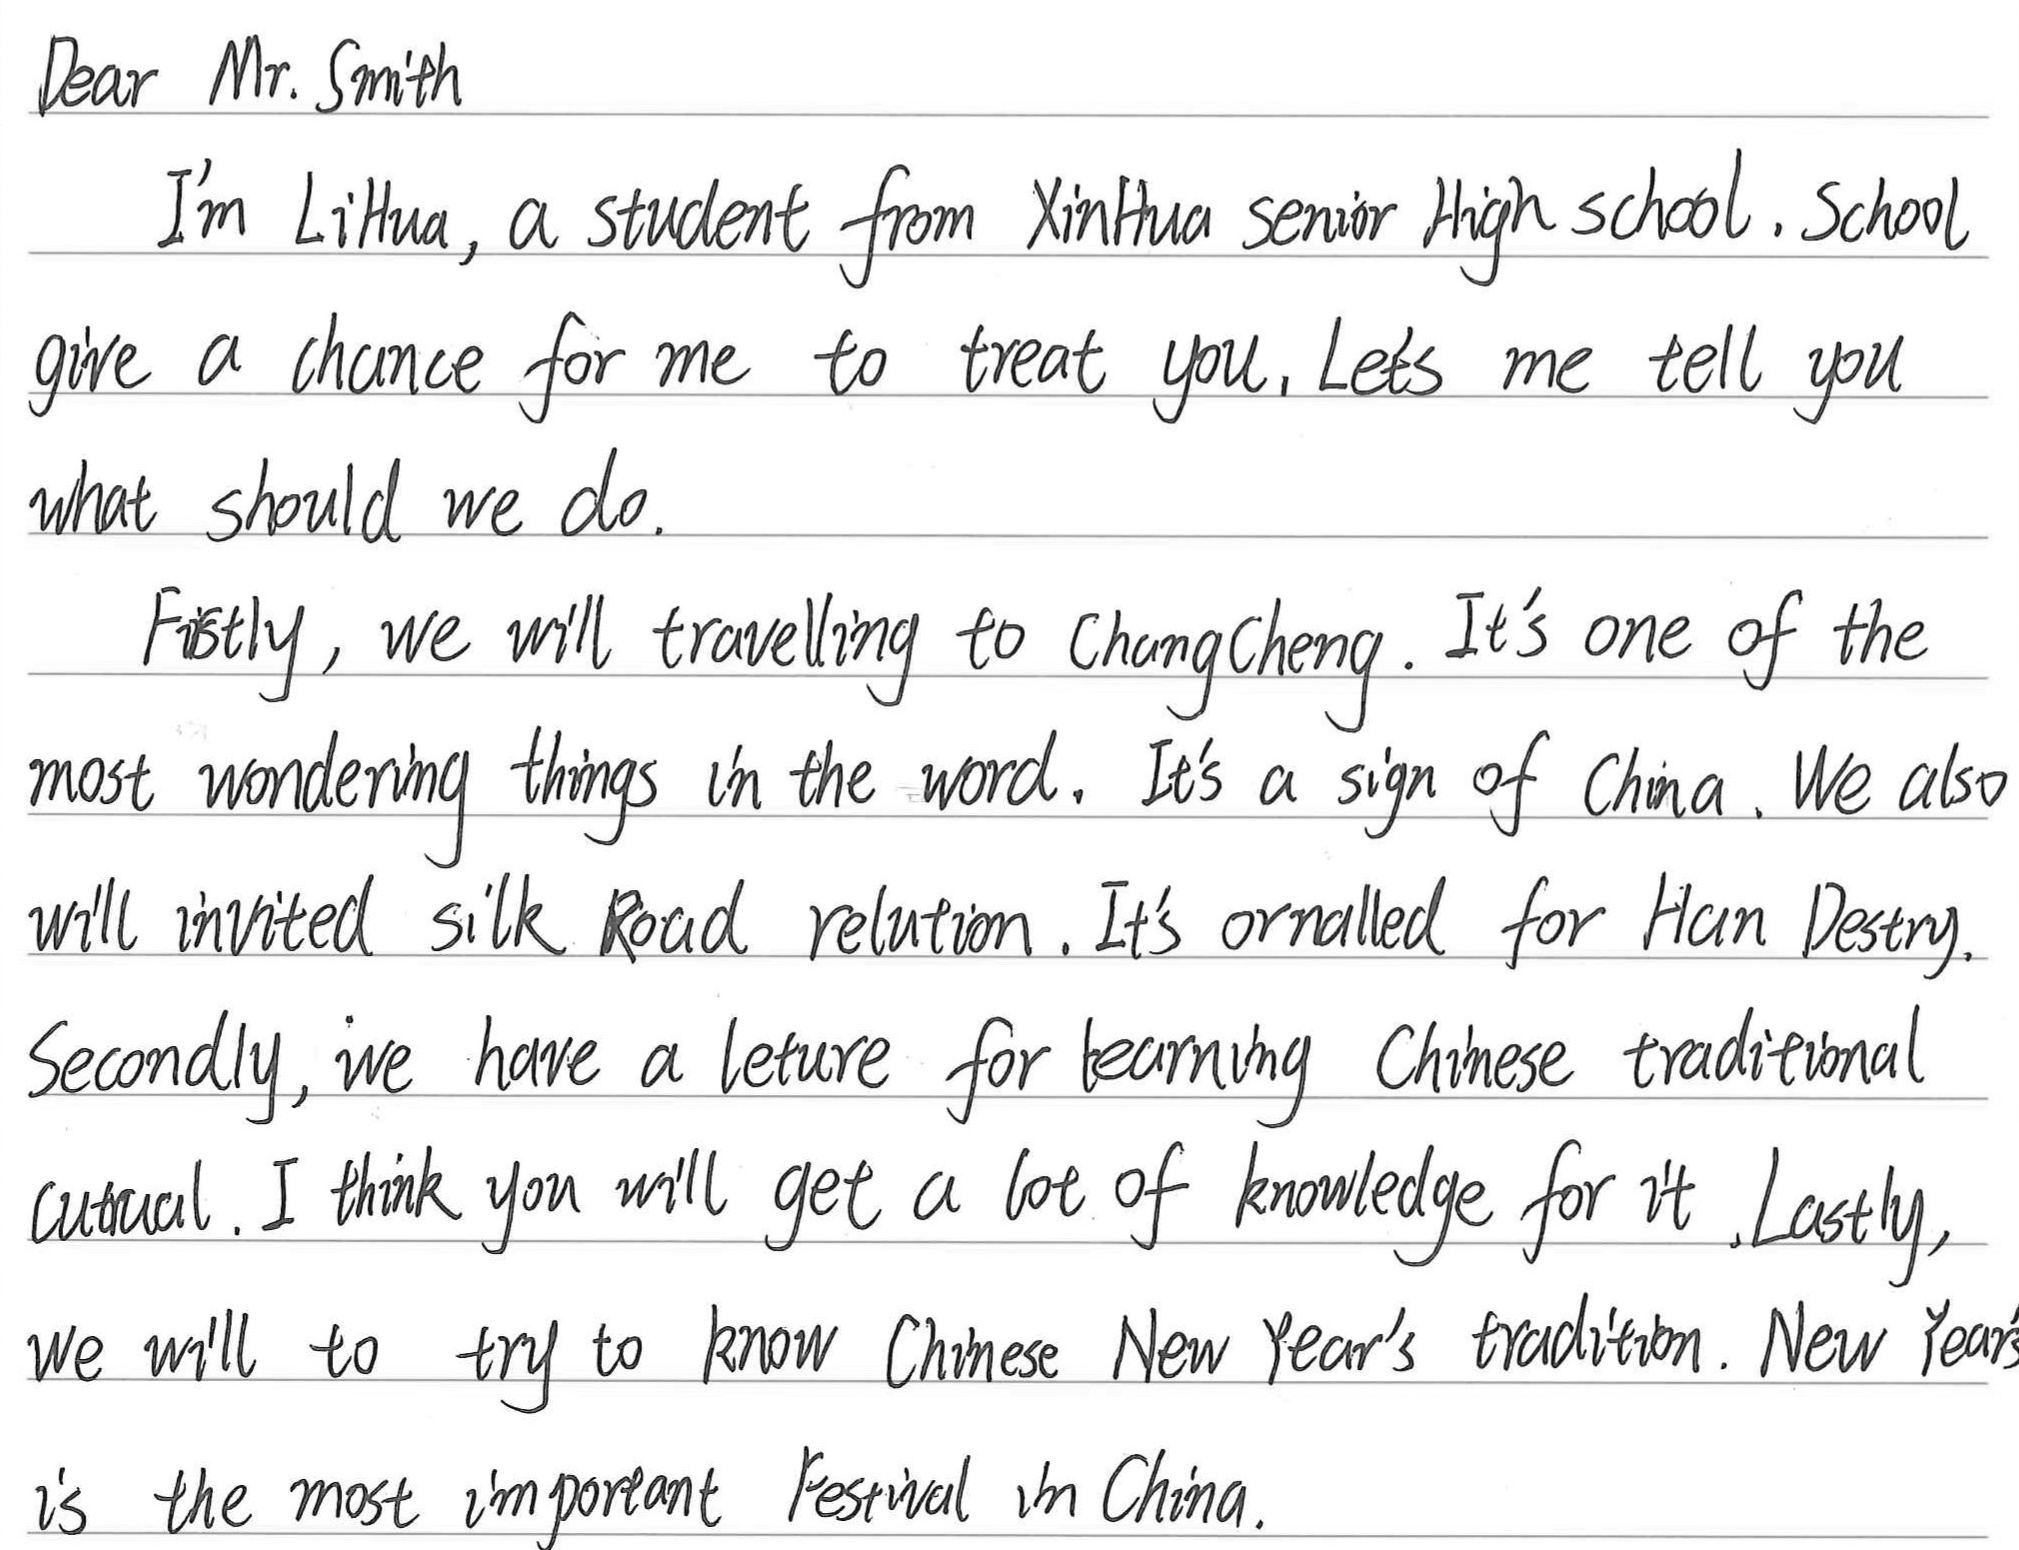 Dear Mr. Smith
I'm LiHua, a student from XinHua senior High school. School
give a chance for me to treat you. Let's me tell you
what should we do.
Fistly, we will travelling to ChangCheng. It's one of the
most wondering things in the word. It's a sign of China. We also
will invited silk Road relution. It's ornalled for Han Destry.
Secondly, we have a leture for learning Chinese traditional
cutural. I think you will get a lot of knowledge for it. Lastly,
we will to try to know Chinese New Year's tradition. New Year's
is the most important Festival in China.